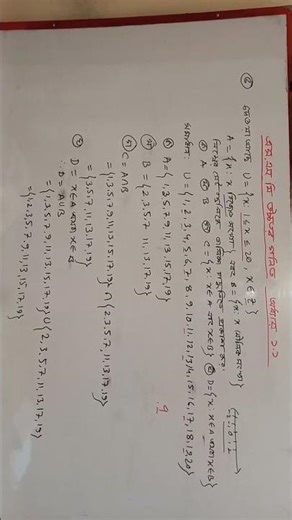 এস.এস.সি উচ্চতর গণিত অধ্যায় ২.১
দেওয়া আছে U = {x: 1 ≤ x ≤ 20, x ∈ Z}
A = {x: x বিজোড় সংখ্যা} এবং B = {x: x মৌলিক সংখ্যা}
A B C = {x: x ∈ A এবং x ∈ B} D = {x: x ∈ A অথবা x ∈ B}
U = {1, 2, 3, 4, 5, 6, 7, 8, 9, 10, 11, 12, 13, 14, 15, 16, 17, 18, 19, 20}
A = {1, 3, 5, 7, 9, 11, 13, 15, 17, 19}
B = {2, 3, 5, 7, 11, 13, 17, 19}
C = A∩B
= {1, 3, 5, 7, 9, 11, 13, 15, 17, 19} ∩ {2, 3, 5, 7, 11, 13, 17, 19}
= {3, 5, 7, 11, 13, 17, 19}
D = x∈A অথবা x∈B
∴ D = A∪B
= {1, 3, 5, 7, 9, 11, 13, 15, 17, 19} ∪ {2, 3, 5, 7, 11, 13, 17, 19}
= {1, 2, 3, 5, 7, 9, 11, 13, 15, 17, 19}